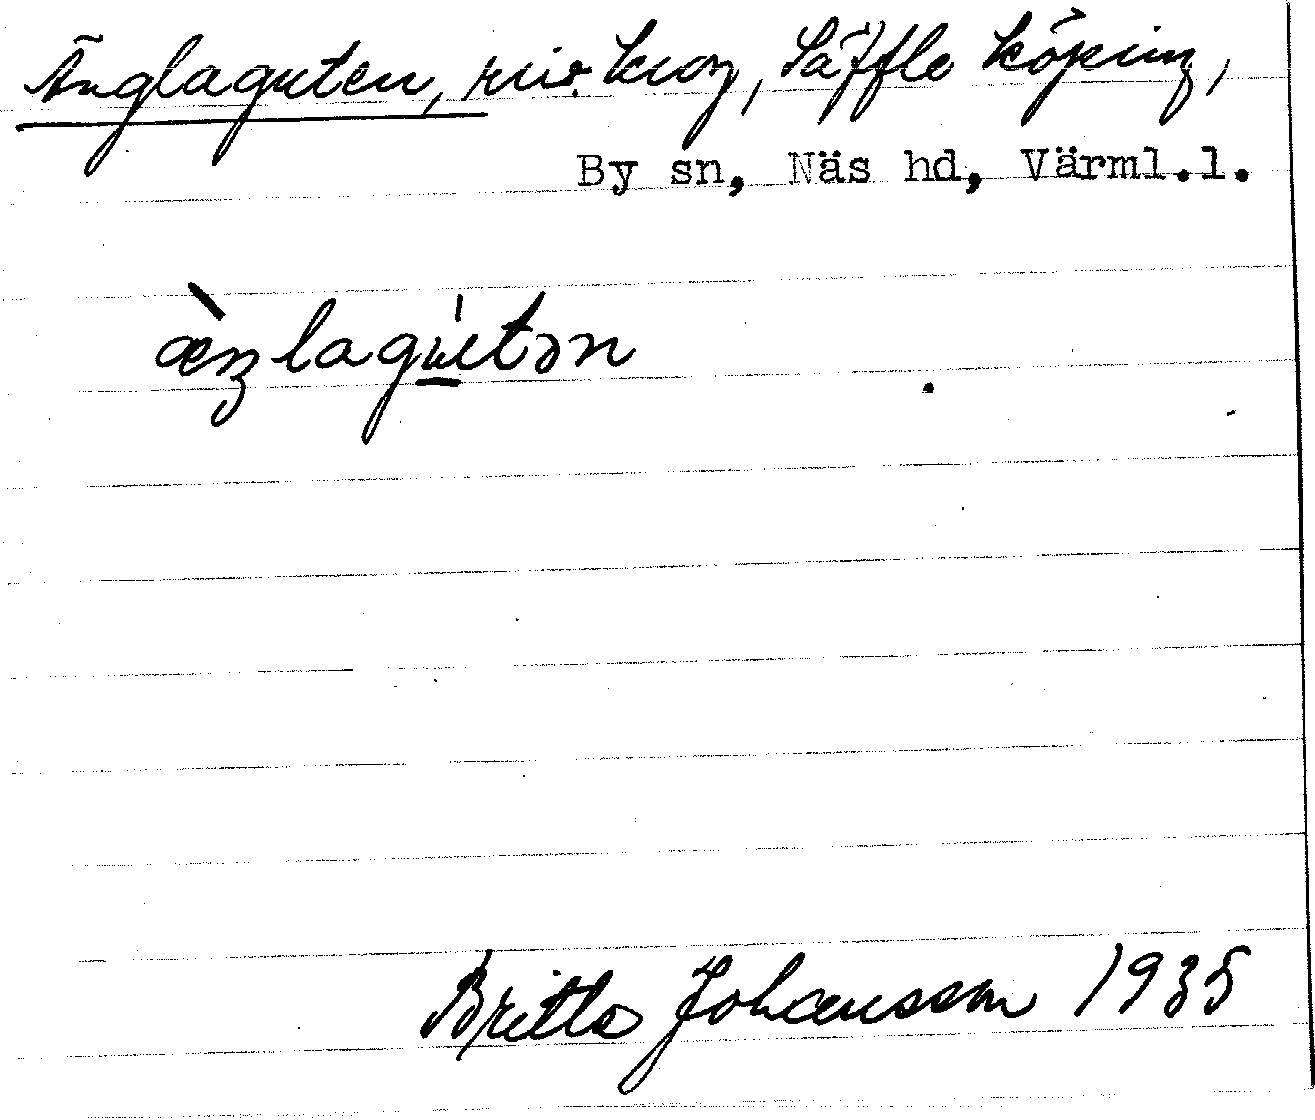 Änglaguten, riv. krog, Säffle köping,
By sn, Näs hd, Värml.l.
æ̀ŋlagu̱̍tən
Britta Johansson 1935